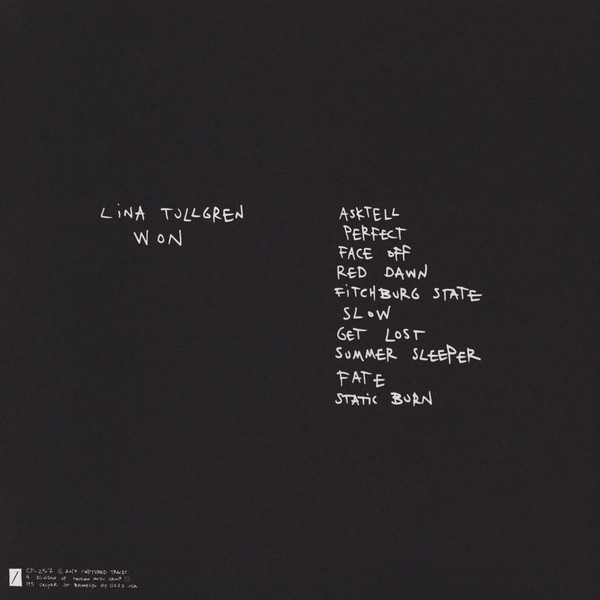 LiNA TULLGREN
WON
ASKTELL
PERFECT
FACE OFF
RED DAWN
FiTCHBURG STATE
SLOW
GET LOST
SUMMER SLEEPER
FATE
STATiC BURN
CT-257 2017 CAPTURED TRACKS
A DIVISION OF